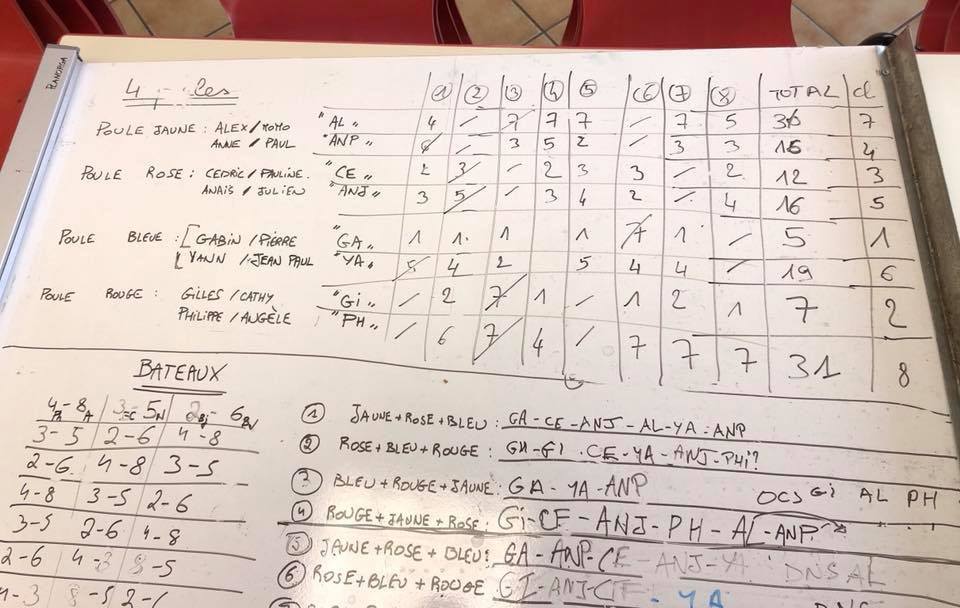 PLANORGA
4 - les ① ② ③ ④ ⑤ ⑥ ⑦ ⑧ TOTAL cl
POULE JAUNE : ALEX / MOMO "AL" 4 / 7 7 7 / 7 5 30 7
ANNE / PAUL "ANP" 6 / 3 5 2 / 3 3 16 4
POULE ROSE : CEDRIC / PAULINE. "CE" 2 3 / 2 3 3 / 2 12 3
ANAIS / JULIEN "ANJ" 3 5 / 3 4 2 / 4 16 5
POULE BLEUE : [ GABIN / PIERRE "GA" 1 1 1 1 7 1 / 5 1
YANN / JEAN PAUL "YA" 5 4 2 5 4 4 / 19 6
POULE ROUGE : GILLES / CATHY "Gi" / 2 7 1 / 1 2 1 7 2
PHILIPPE / ANGÈLE "PH" / 6 7 4 / 7 7 7 31 8
BATEAUX
4-8 3-5 6
3-5 2-6 4-8
2-6 4-8 3-5
4-8 3-5 2-6
3-5 2-6 4-8
2-6 4-3 -5
-3 -5 2-
① JAUNE + ROSE + BLEU : GA - CE - ANJ - AL - YA - ANP
② ROSE + BLEU + ROUGE : GA - Gi . CE - YA - ANJ - PHi?
③ BLEU + ROUGE + JAUNE : GA - YA - ANP OCS Gi AL PH
④ ROUGE + JAUNE + ROSE : Gi - CE - ANJ - PH - AL - ANP
⑤ JAUNE + ROSE + BLEU : GA - ANP - CE - ANJ - YA DNS AL
⑥ ROSE + BLEU + ROUGE GI - ANJ - CE - YA